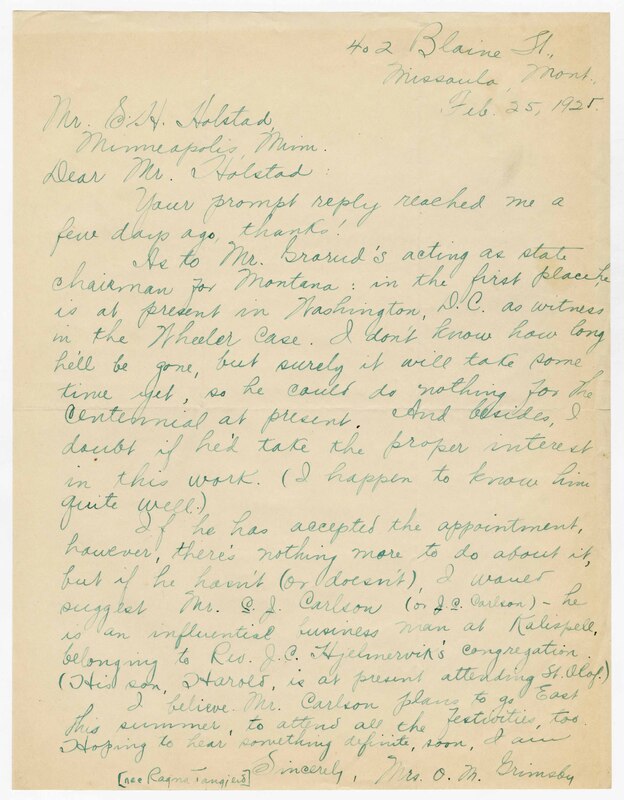 402 Blaine St.,
Missoula, Mont.
Feb. 25, 1925
Mr. E. H. Holstad,
Minneapolis, Minn.
Dear Mr. Holstad:
Your prompt reply reached me a
few days ago, thanks!
As to Mr. Grorud's acting as state
chairman for Montana: in the first place, he
is at present in Washington, D.C. as witness
in the Wheeler case. I don't know how long
he'll be gone, but surely it will take some
time yet, so he could do nothing for the
Centennial at present. And besides, I
doubt if he'd take the proper interest
in this work. (I happen to know him
quite well.)
If he has accepted the appointment,
however, there's nothing more to do about it,
but if he hasn't (or doesn't), I would
suggest Mr. C. J. Carlson (or J. C. Carlson) - he
is an influential business man at Kalispell,
belonging to Rev. J. C. Hjelmervik's congregation.
(His son, Harold, is at present attending St. Olaf.)
I believe Mr. Carlson plans to go East
this summer, to attend all the festivities, too.
Hoping to hear something definite, soon, I am
Sincerely, Mrs. O. M. Grimsby
[nee Ragna Tangjerd]